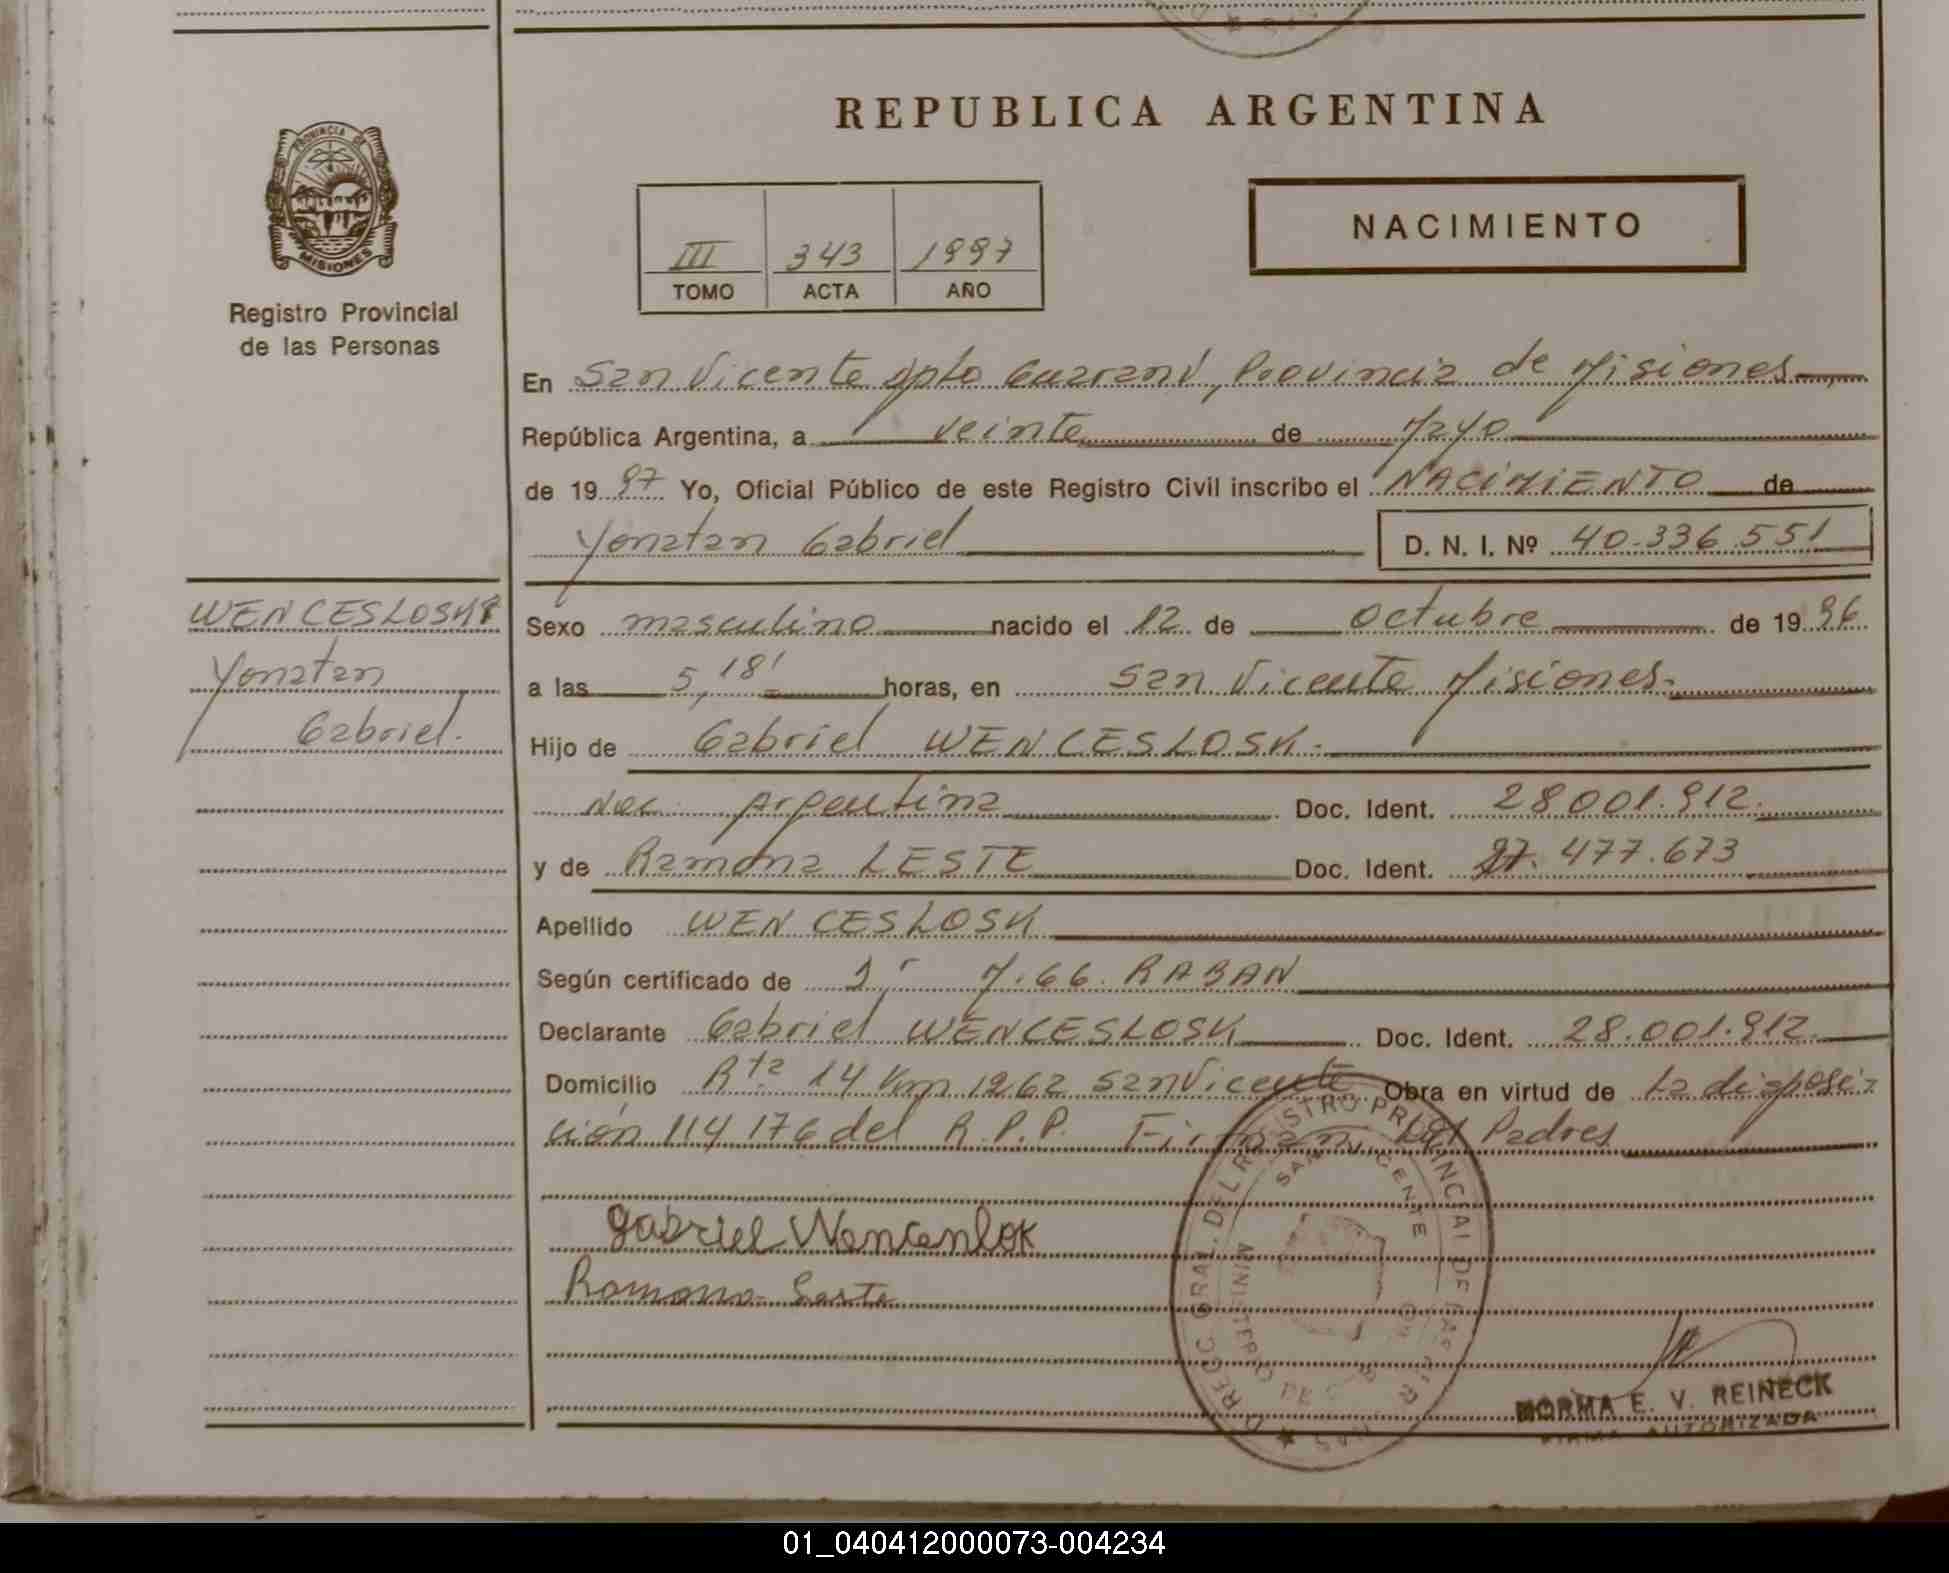 REPUBLICA ARGENTINA
PROVINCIA DE
MISIONES
Registro Provincial
de las Personas
III 343 1997
TOMO ACTA AÑO
NACIMIENTO
En San Vicente Dpto Guaraní, Provincia de Misiones
República Argentina, a veinte de Mayo
de 1997 Yo, Oficial Público de este Registro Civil inscribo el NACIMIENTO de
Yonatan Gabriel D. N. I. Nº 40.336.551
WENCESLOSKI
Yonatan
Gabriel.
Sexo masculino nacido el 12 de Octubre de 1996
a las 5,18' horas, en San Vicente Misiones.
Hijo de Gabriel WENCESLOSK.
Nac. Argentina Doc. Ident. 28.001.912.
y de Ramona LESTE Doc. Ident. 27.477.673
Apellido WENCESLOSK
Según certificado de M.66. RABAN
Declarante Gabriel WENCESLOSK Doc. Ident. 28.001.912.
Domicilio Rta 14 Km 1262 San Vicente Obra en virtud de La disposi-
ción 114176 del R.P.P. Firman Los Padres
gabriel Wencenlok
Ramona Leste
SAN VICENTE
NORMA E. V. REINECK
FIRMA AUTORIZADA
01_040412000073-004234